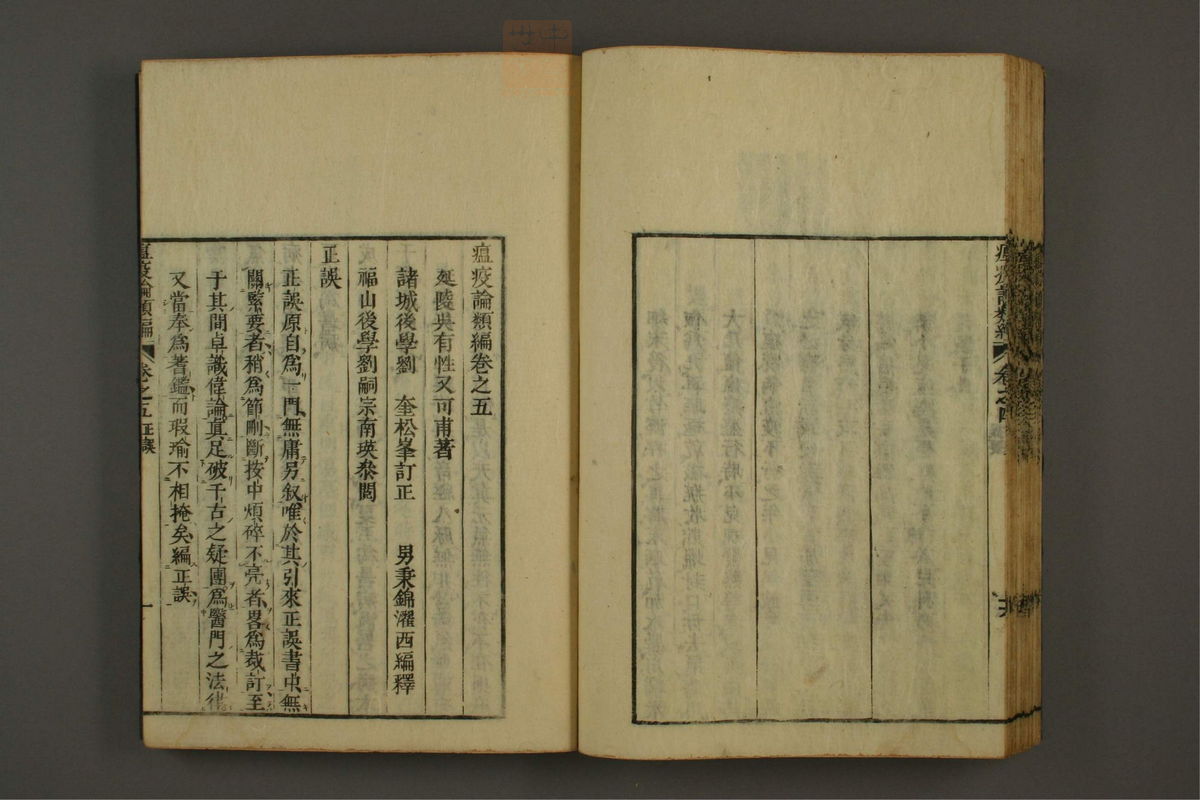 瘟疫論類編
卷之四
瘟疫論類編卷之五
延陵吳有性又可甫著
諸城後學劉 奎松峯訂正 男秉錦濯西編釋
福山後學劉嗣宗南瑛叅閱
正誤
正誤原自爲一門無庸另叙唯於其引來正誤書中無
關緊要者稍爲節刪斷按中煩碎不亮者畧爲裁訂至
于其間卓識偉論眞足破千古之疑團爲醫門之法律
又當奉爲著鑑而瑕瑜不相掩矣編正誤
瘟疫論類編
卷之五正誤
一